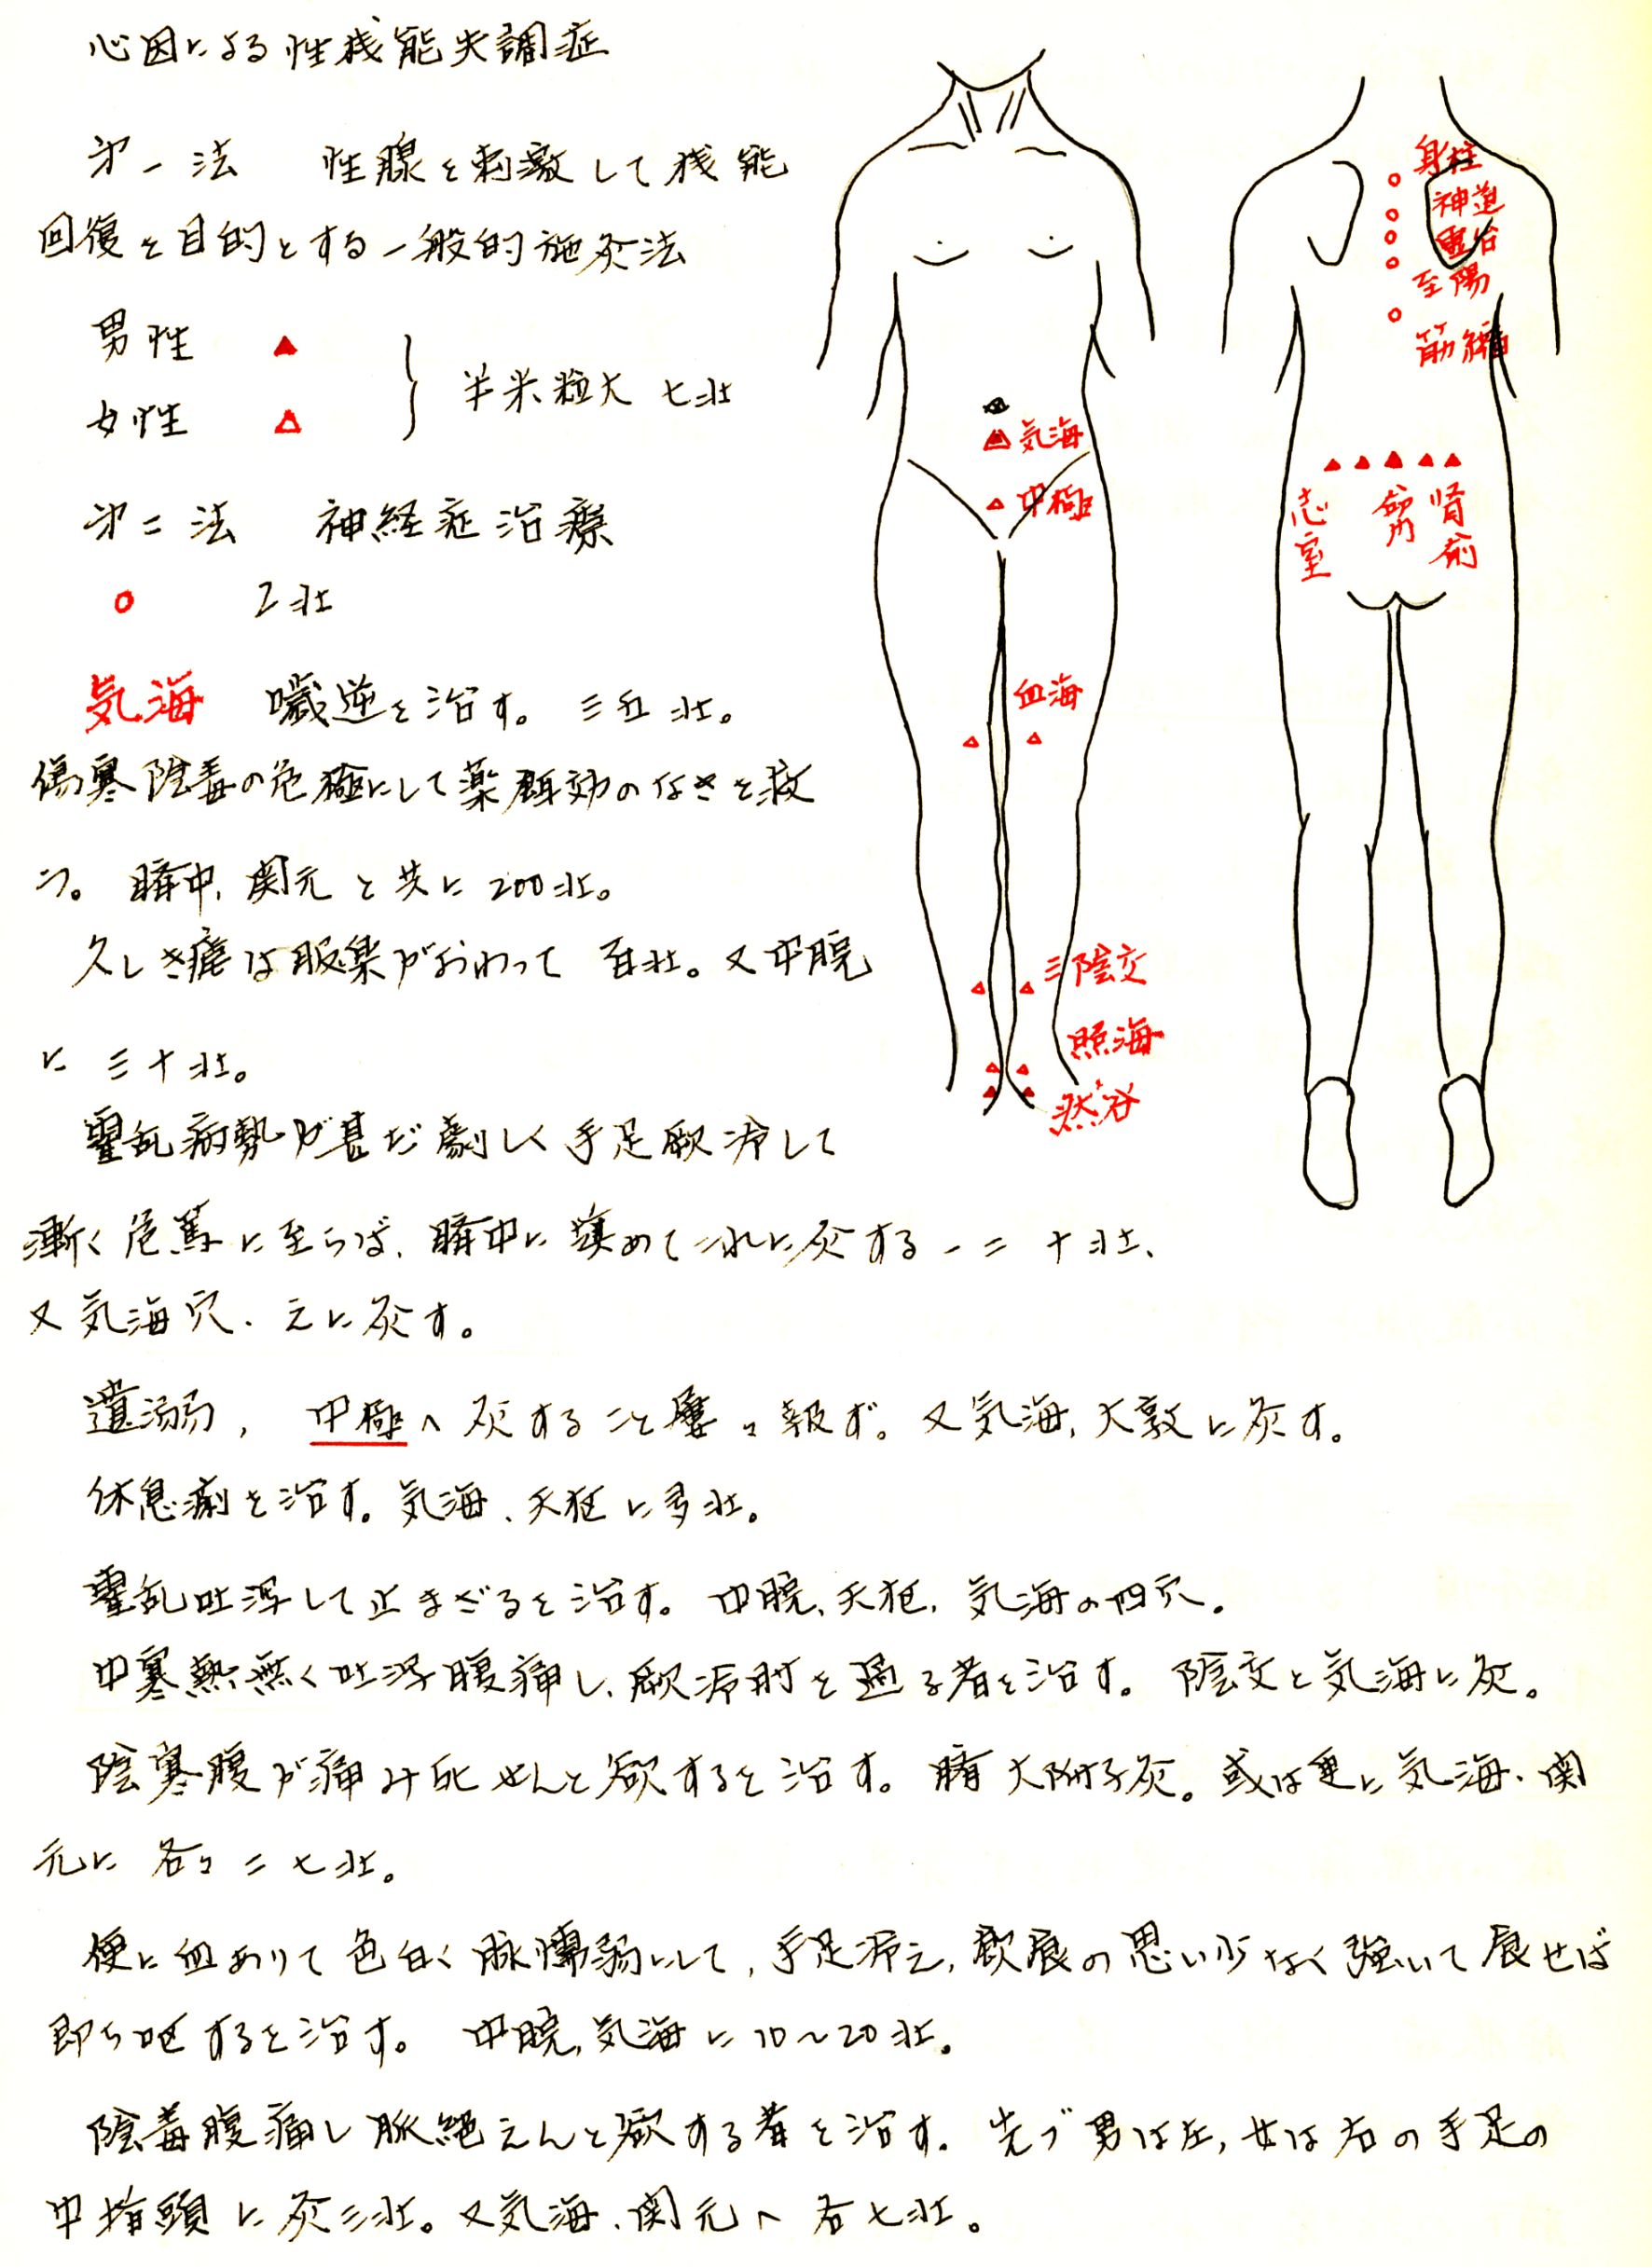 心因による性機能失調症
第一法 性腺を刺激して機能
回復を目的とする一般的施灸法
男性 ▲
女性 △
半米粒大 七壮
第二法 神経症治療
○ 2壮
気海 噦逆を治す。三五壮。
傷寒陰毒の危極にして薬餌効のなきを救
う。臍中、関元と共に200壮。
久しき瘧は服薬がおわって百壮。又中脘
に三十壮。
霍乱病勢が甚だ劇しく手足厥冷して
漸く危篤に至らば、臍中に填めてこれに灸する一二十壮、
又気海穴、之に灸す。
遺溺, 中極へ灸すること屡々報ず。又気海,大敦に灸す。
休息痢を治す。気海、天枢に多壮。
霍乱吐瀉して止まざるを治す。中脘,天枢,気海の四穴。
中寒熱無く吐瀉腹痛し、厥冷肘を過る者を治す。陰交と気海に灸。
陰寒腹が痛み死せんと欲するを治す。臍大附子灸。或は更に気海、関
元に各々二七壮。
便に血ありて色白く脉濡弱にして,手足冷え,飲食の思い少なく強いて食せば
即ち呕するを治す。中脘,気海に10〜20壮。
陰毒腹痛し脈絶えんと欲する者を治す。先づ男は左,女は右の手足の
中指頭に灸三壮。又気海、関元へ各七壮。
気海
中極
血海
三陰交
照海
然谷
身柱
神道
霊台
至陽
筋縮
志室
命門
腎兪